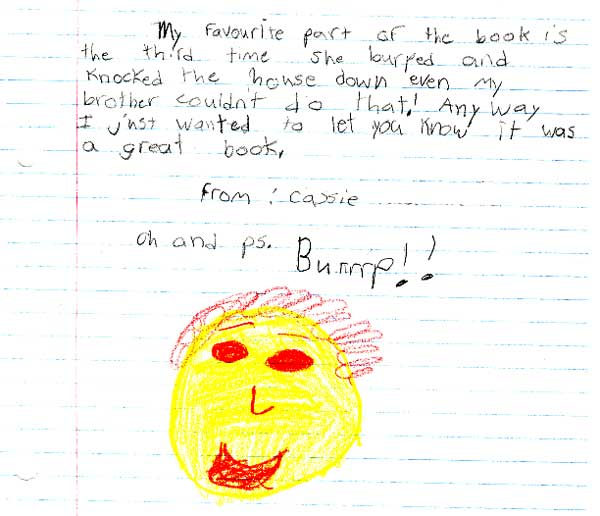 My favourite part of the book is
the third time she burped and
knocked the house down even my
brother couldn't do that! Any way
I just wanted to let you know it was
a great book,
from : Cassie
oh and ps. Burrrrp!!